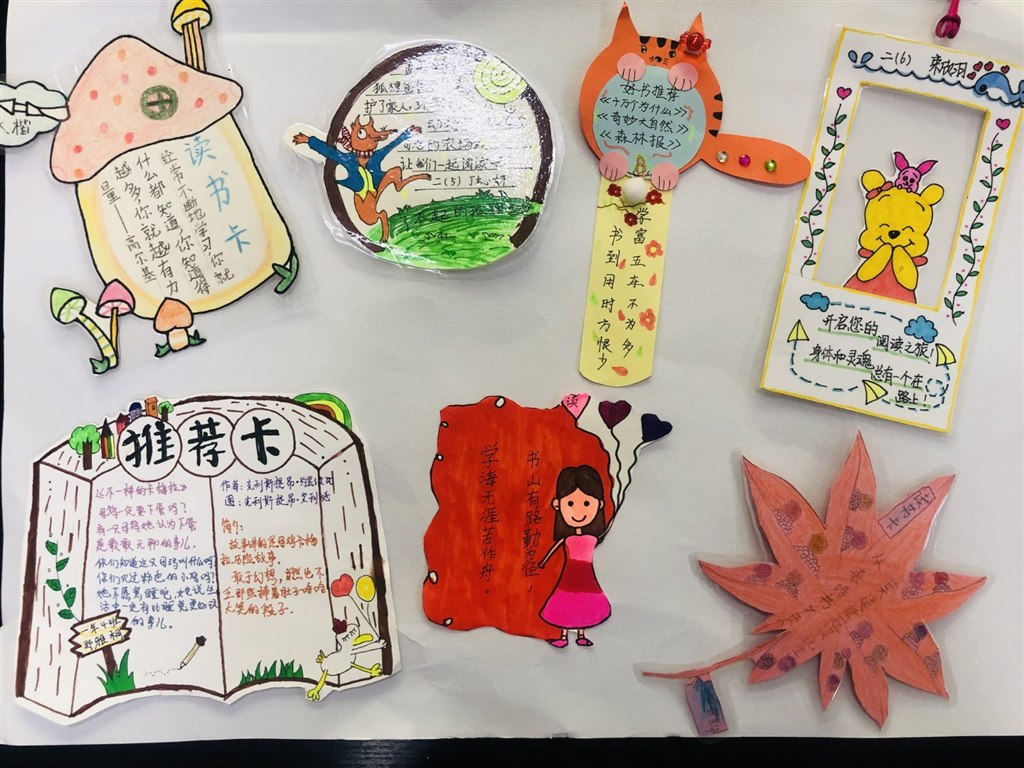 读书卡
经常不断地学习,你就
什么都知道,你知道得
越多你就越有力
量——高尔基
楷
狐狸爸
护了家人
让我们一起阅读吧
二(5)
了不起的狐狸
好书推荐
《十万个为什么》
《奇妙大自然》
《森林报》
学富五车不为多
书到用时方恨少
二(6)
开启您的
阅读之旅!
身体和灵魂
总有一个在
路上!
推荐卡
《不一样的卡梅拉》
母鸡一定要下蛋吗?
有一只母鸡她认为下蛋
是最最无聊的事儿。
你们知道这只母鸡叫什么吗?
你们见过粉色的小鸡吗?
她不愿驾睡吧,她说生
活中一定有比睡觉更好玩
的事儿。
一年4班
舒雅桐
作者:克利斯提昂·约里波瓦
图:克利斯提昂·艾利施
简介:
故事讲的是母鸡卡梅
拉历险故事。
敢于幻想,当然也不
乏那些捧着肚子哈哈
大笑的段子。
读
书山有路勤为径,
学海无涯苦作舟。
读书卡